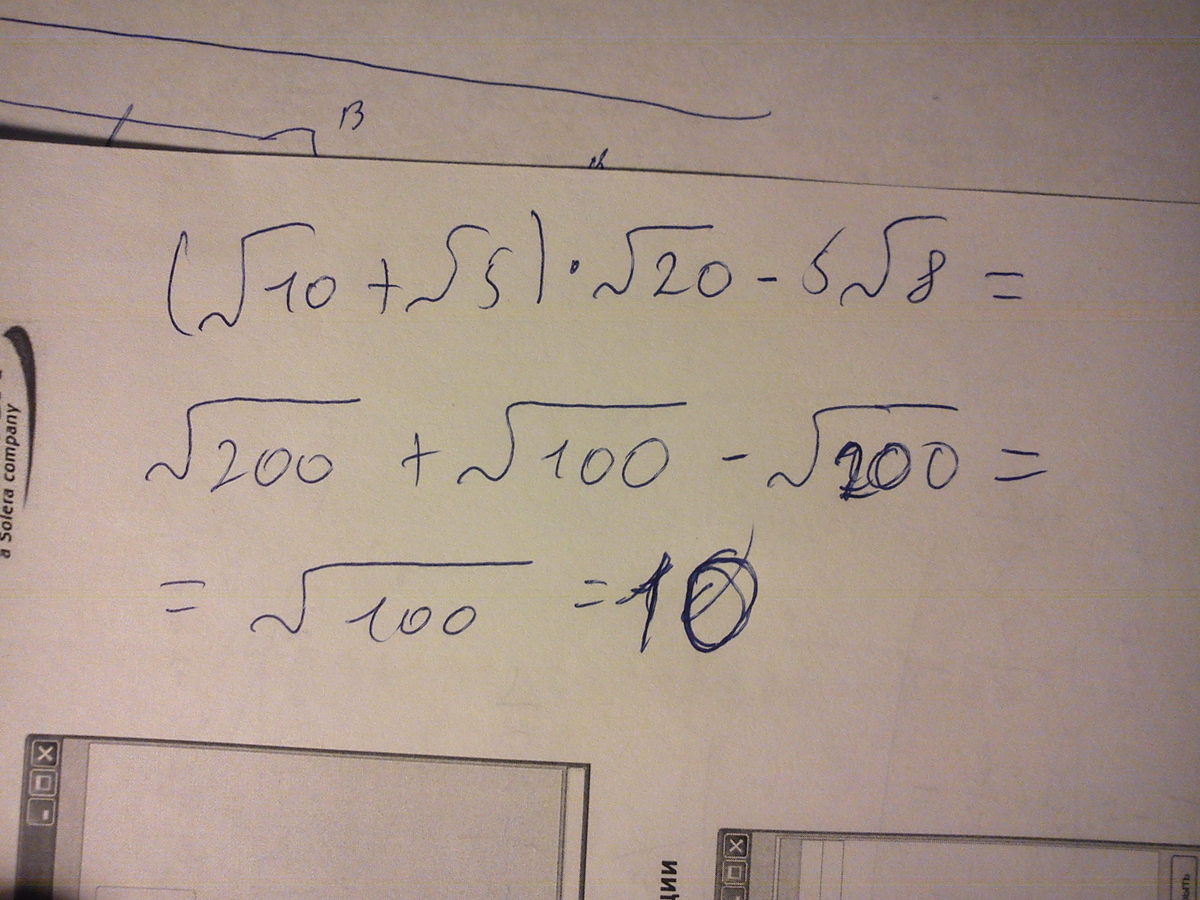 B
(√10 + √5) · √20 - 5√8 =
√200 + √100 - √200 =
= √100 = 10
a Solera company
ции